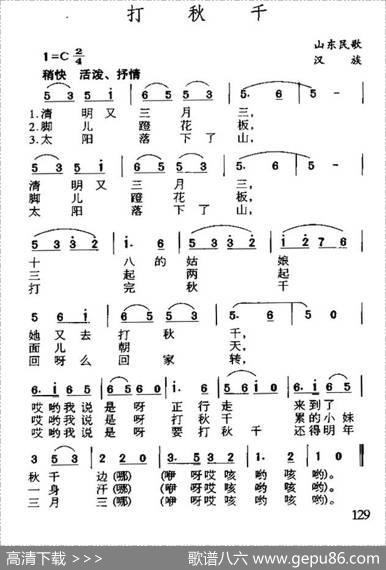 打 秋 千
1=C 2/4
山东民歌
汉 族
稍快 活泼、抒情
5 3 5 i | 6 5 3 | 6 5 | 5 - |
1.清 明 又 三 月 三,
2.脚 儿 蹬 花 板,
3.太 阳 落 下 了 山,
5 3 5 i | 6 5 3 | 5. 6 | 5 - |
清 明 又 三 月 三,
脚 儿 蹬 花 板,
太 阳 落 下 了 山,
5 3 3 2 | i. 6 | 5 3 3 2 | i 2 7 6 |
十 八 的 姑 娘
三 起 两 起
打 完 秋 千
5 6 i | 6 3 5 | 5. 6 | 5 0 |
她 又 去 打 秋 千,
面 儿 朝 天,
回 呀 么 回 家 转,
6. i 6 5 | 6 5 6 0 | i. 6 | 5 6 5 i | 6. i 6 5 |
哎哟我说 是 呀 正 行 走 来 到 了
哎哟我说 是 呀 打 秋 千 累 的 小 妹
哎哟我说 是 呀 要 打 秋 千 还 得 明 年
3 5 3 2 | 1 2 0 | 3. 5 3 2 | 1. 2 | 1 0 ‖
秋 千 边 (哪) (咿 呀 哎 咳 哟 咳 哟)。
一 身 汗 (哪) (咿 呀 哎 咳 哟 咳 哟)。
三 月 三 (哪) (咿 呀 哎 咳 哟 咳 哟)。
129
高清下载 >>> 歌谱八六 www.gepu86.com